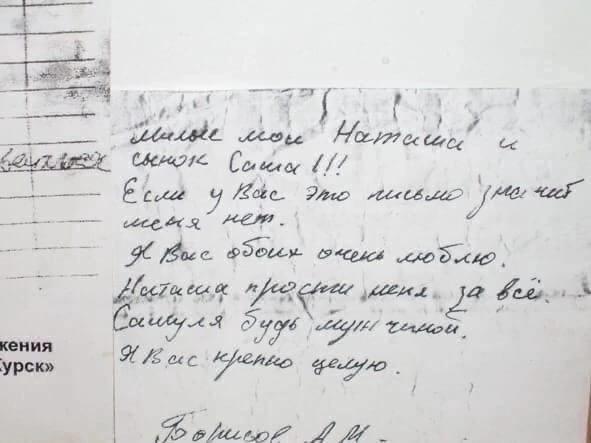 милые мои Наташа и
сынок Саша!!!
Если у Вас это письмо значит
меня нет.
Я Вас обоих очень люблю.
Наташа прости меня за всё.
Сашуля будь мужчиной.
Я Вас крепко целую.
Борисов А.М.
жения
урск»